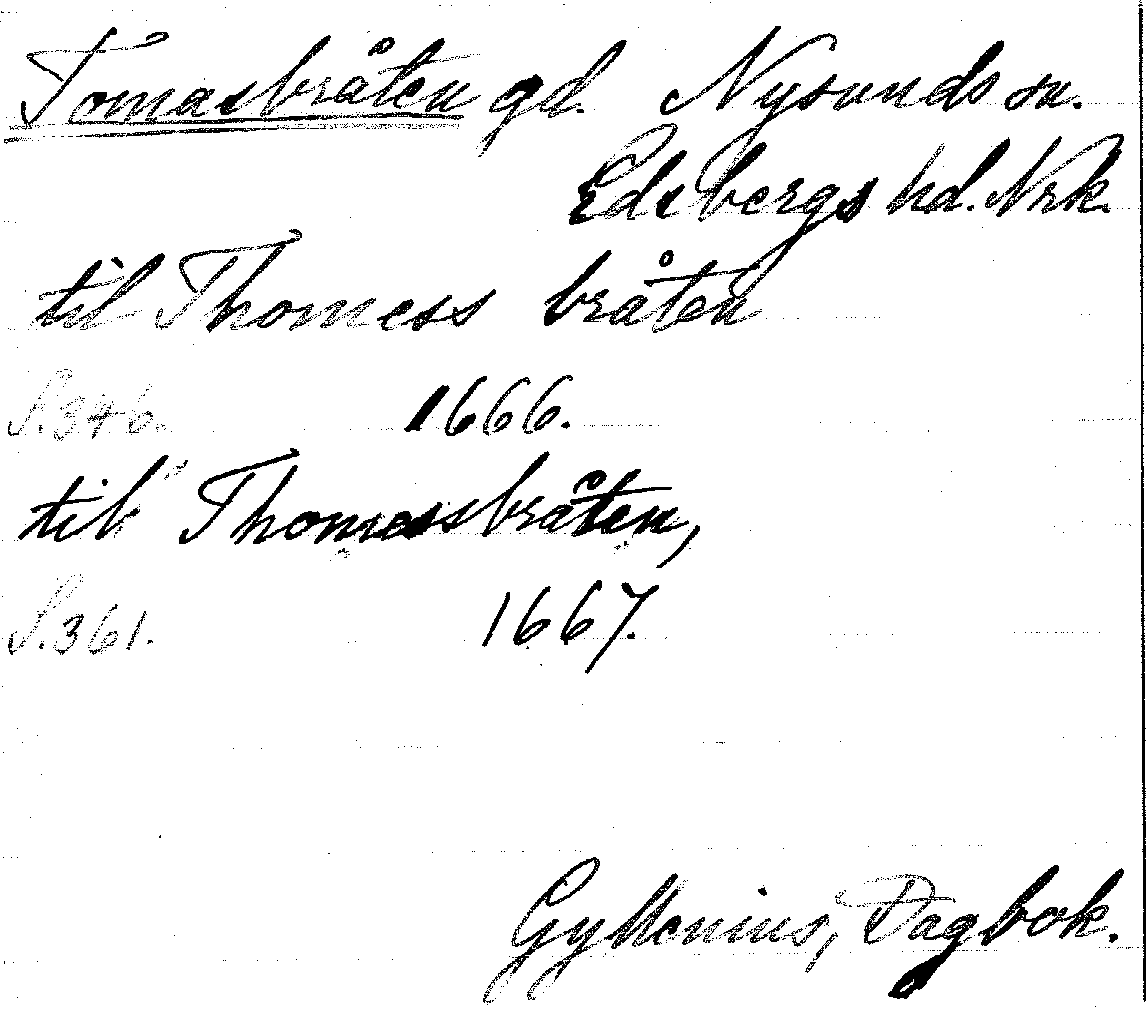 Tomasbråten gd. Nysunds sn.
Edsbergs hd. Nrk.
til Thomess bråten
S.346. 1666.
til Thomessbråten,
S.361. 1667.
Gyllenius, Dagbok.